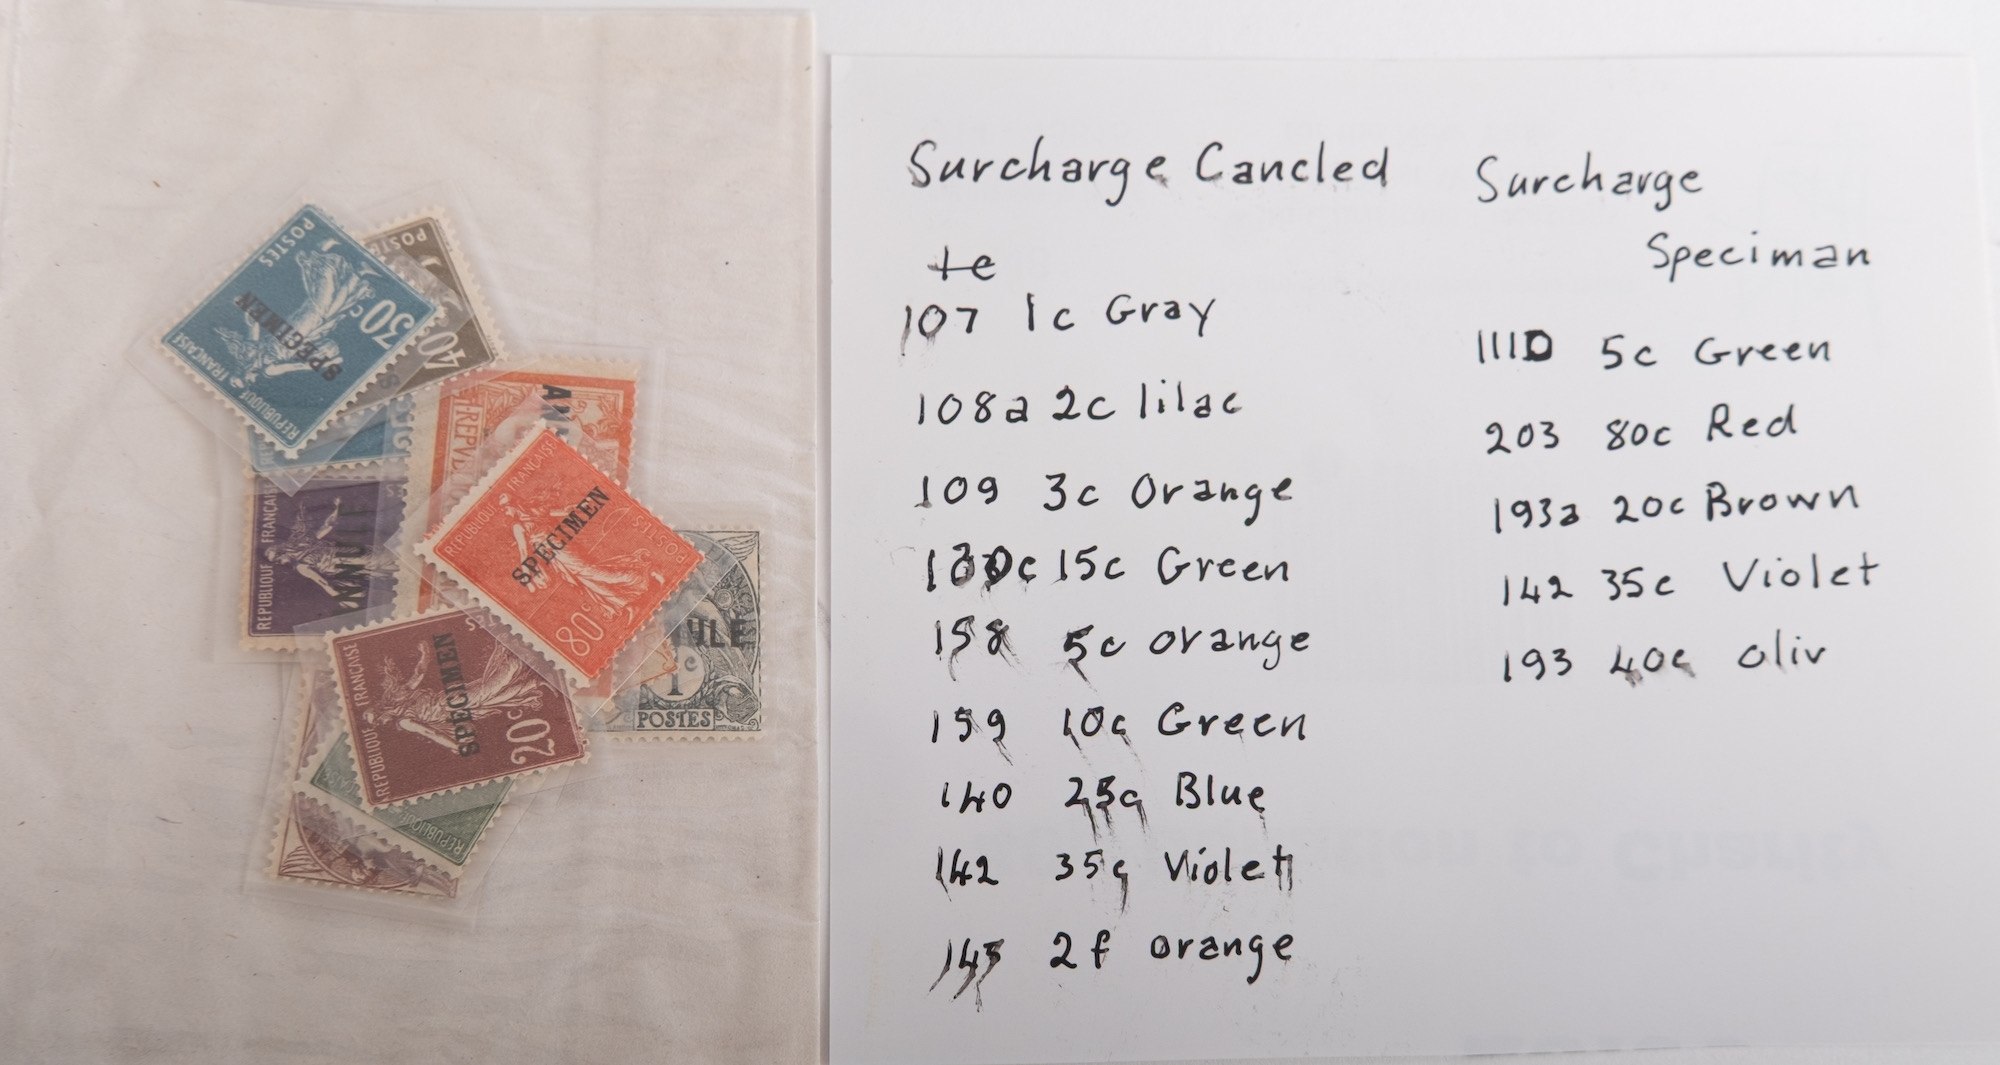 POSTES
30c
SPECIMEN
REPUBLIQUE FRANÇAISE
POST
40c
REPUBLIQUE FRANÇAISE
POSTES
SPECIMEN
80c
REPUBLIQUE FRANÇAISE
REPUBLIQUE FRANÇAISE
SPECIMEN
20c
1c
POSTES
REPUBLIQUE
Surcharge Cancled
1c
107 1c Gray
108a 2c lilac
109 3c Orange
15c Green
158 5c orange
159 10c Green
140 25c Blue
142 35c Violet
145 2f orange
Surcharge
Speciman
111D 5c Green
203 80c Red
193a 20c Brown
142 35c Violet
193 40c oliv